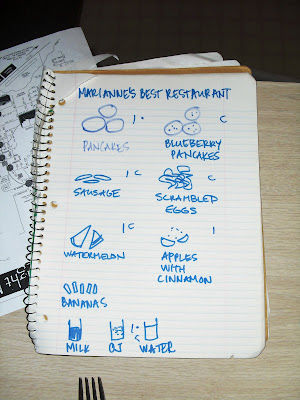 MARIANNE'S BEST RESTAURANT
1 • C
PANCAKES BLUEBERRY
PANCAKES
1 C C
SAUSAGE SCRAMBLED
EGGS
1 C 1
WATERMELON APPLES
WITH
CINNAMON
BANANAS
MILK OJ WATER